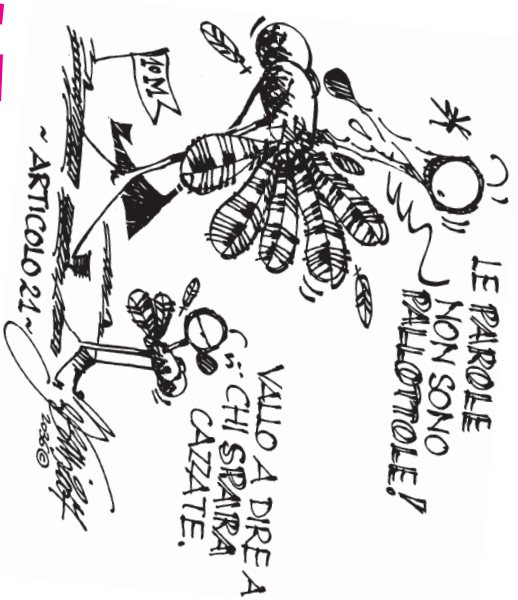 LE PAROLE
NON SONO
PALLOTTOLE!
VALLO A DIRE A
CHI SPARA
CAZZATE.
10M
~ ARTICOLO 21 ~